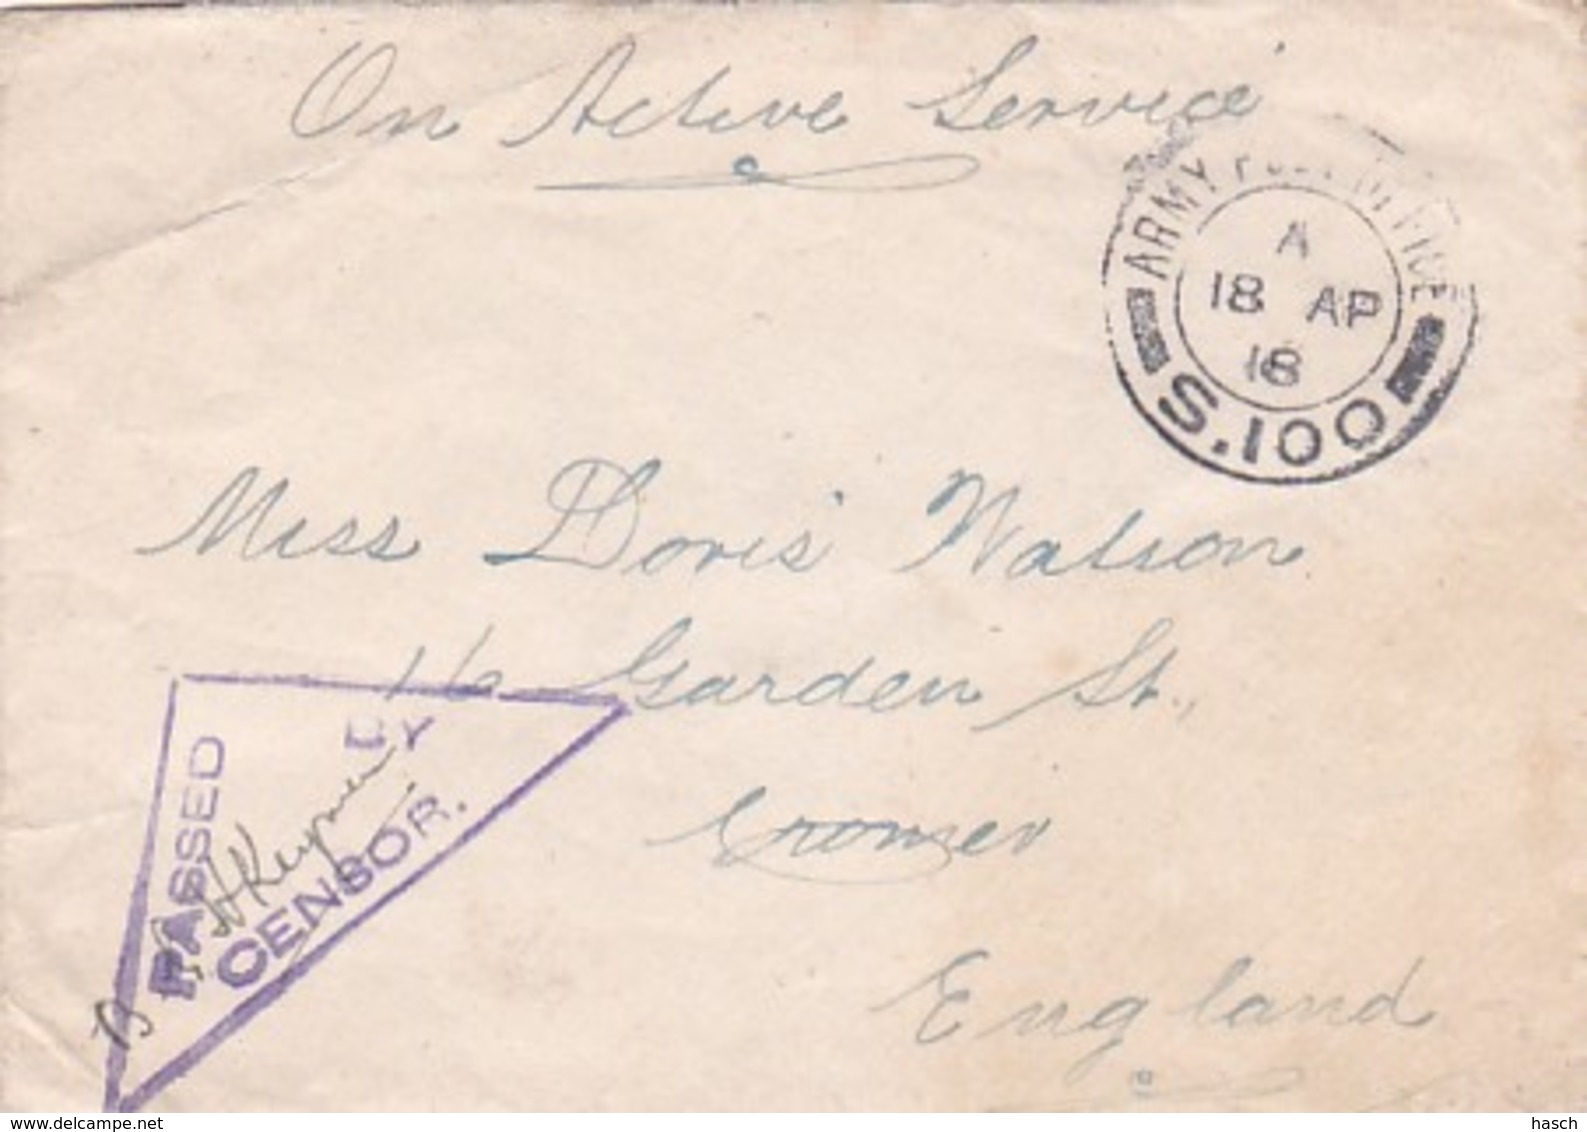 On Active Service
ARMY POST OFFICE
A
18 AP
18
S.100
Miss Doris Watson
16 Garden St.,
Cromer
England
PASSED
BY
CENSOR.
www.delcampe.net
hasch